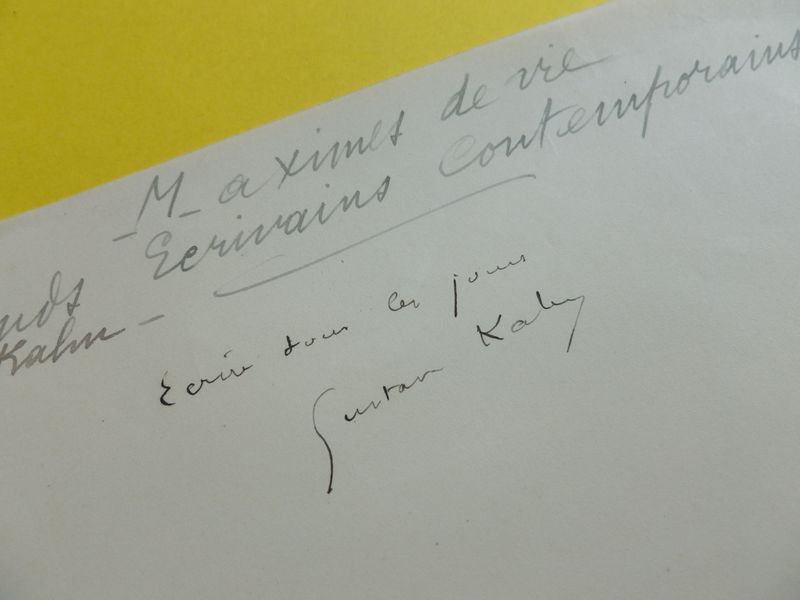 -M-aximes de vie
nds Ecrivains Contemporains
Kahn -
Ecrire tous les jours
Gustave Kahn